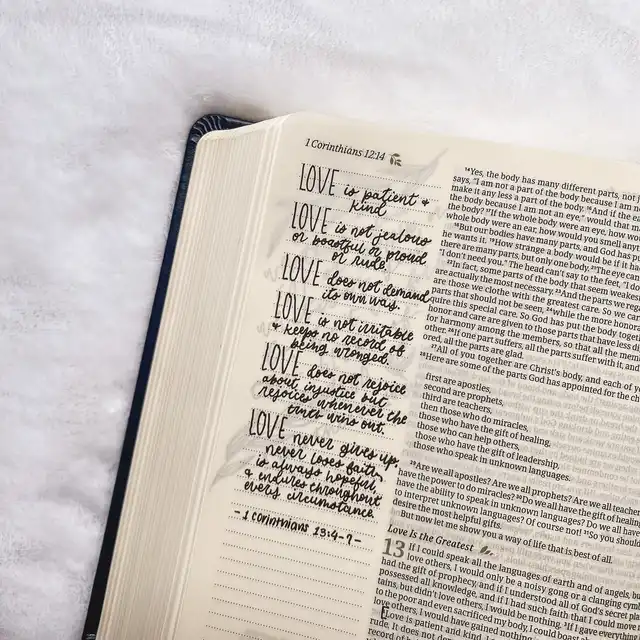 1 Corinthians 12:14
LOVE is patient &
kind
LOVE is not jealous
or boastful or proud
or rude.
LOVE does not demand
its own way.
LOVE is not irritable
& keeps no record of
being wronged.
LOVE does not rejoice
about injustice but
rejoices whenever the
truth wins out.
LOVE never gives up,
never loses faith,
is always hopeful,
& endures throughout
every circumstance.
- 1 Corinthians 13:4-7 -
14Yes, the body has many different parts, not j
says, "I am not a part of the body because I am no
make it any less a part of the body. 16And if the ea
the body because I am not an eye," would that m
the body? 17If the whole body were an eye, how wou
whole body were an ear, how would you smell anyt
18But our bodies have many parts, and God has pu
he wants it. 19How strange a body would be if it ha
there are many parts, but only one body. 21The eye can
"I don't need you." The head can't say to the feet, "I do
22In fact, some parts of the body that seem weakes
are actually the most necessary. 23And the parts we rega
are those we clothe with the greatest care. So we car
parts that should not be seen, 24while the more honor
quire this special care. So God has put the body toget
honor and care are given to those parts that have less di
for harmony among the members, so that all the mem
other. 26If one part suffers, all the parts suffer with it, and
ored, all the parts are glad.
27All of you together are Christ's body, and each of y
28Here are some of the parts God has appointed for the ch
first are apostles,
second are prophets,
third are teachers,
then those who do miracles,
those who have the gift of healing,
those who can help others,
those who have the gift of leadership,
those who speak in unknown languages.
29Are we all apostles? Are we all prophets? Are we all teacher
have the power to do miracles? 30Do we all have the gift of healing
have the ability to speak in unknown languages? Do we all have
to interpret unknown languages? Of course not! 31So you should
desire the most helpful gifts.
But now let me show you a way of life that is best of all.
Love Is the Greatest
13 If I could speak all the languages of earth and of angels, bu
love others, I would only be a noisy gong or a clanging cym
had the gift of prophecy, and if I understood all of God's secret pl
possessed all knowledge, and if I had such faith that I could move
tains, but didn't love others, I would be nothing. 3If I gave everyth
to the poor and even sacrificed my body, I could boast
love others, I would have gained nothing.
Love is patient and kind.
rude. It does not
record of